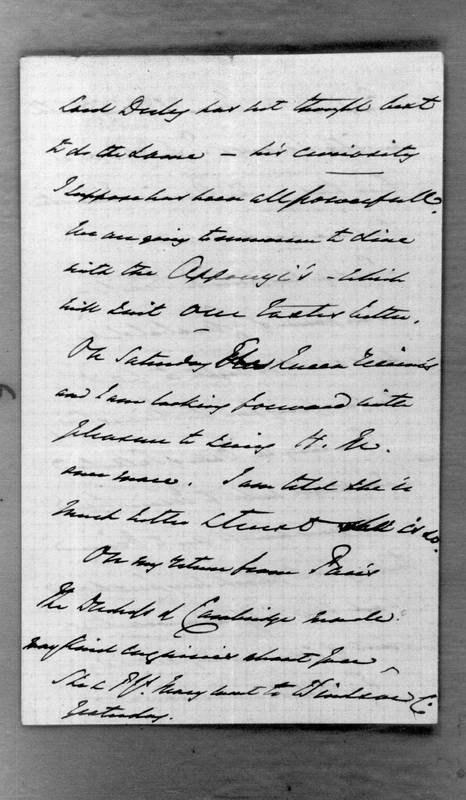 Lord Derby has not thought best
to do the same — his curiosity
I suppose has been all powerfull.
We are going tomorrow to dine
with the Apponyi's - which
will suit our tastes better.
On Saturday the Queen receives
and I am looking forward with
pleasure to seeing H. M.
once more. I am told she is
much better & trust it is so.
On my return from Paris
the Duchess of Cambridge made
many kind enquiries about you,
She & Pss. Mary went to Windsor C.
Yesterday.